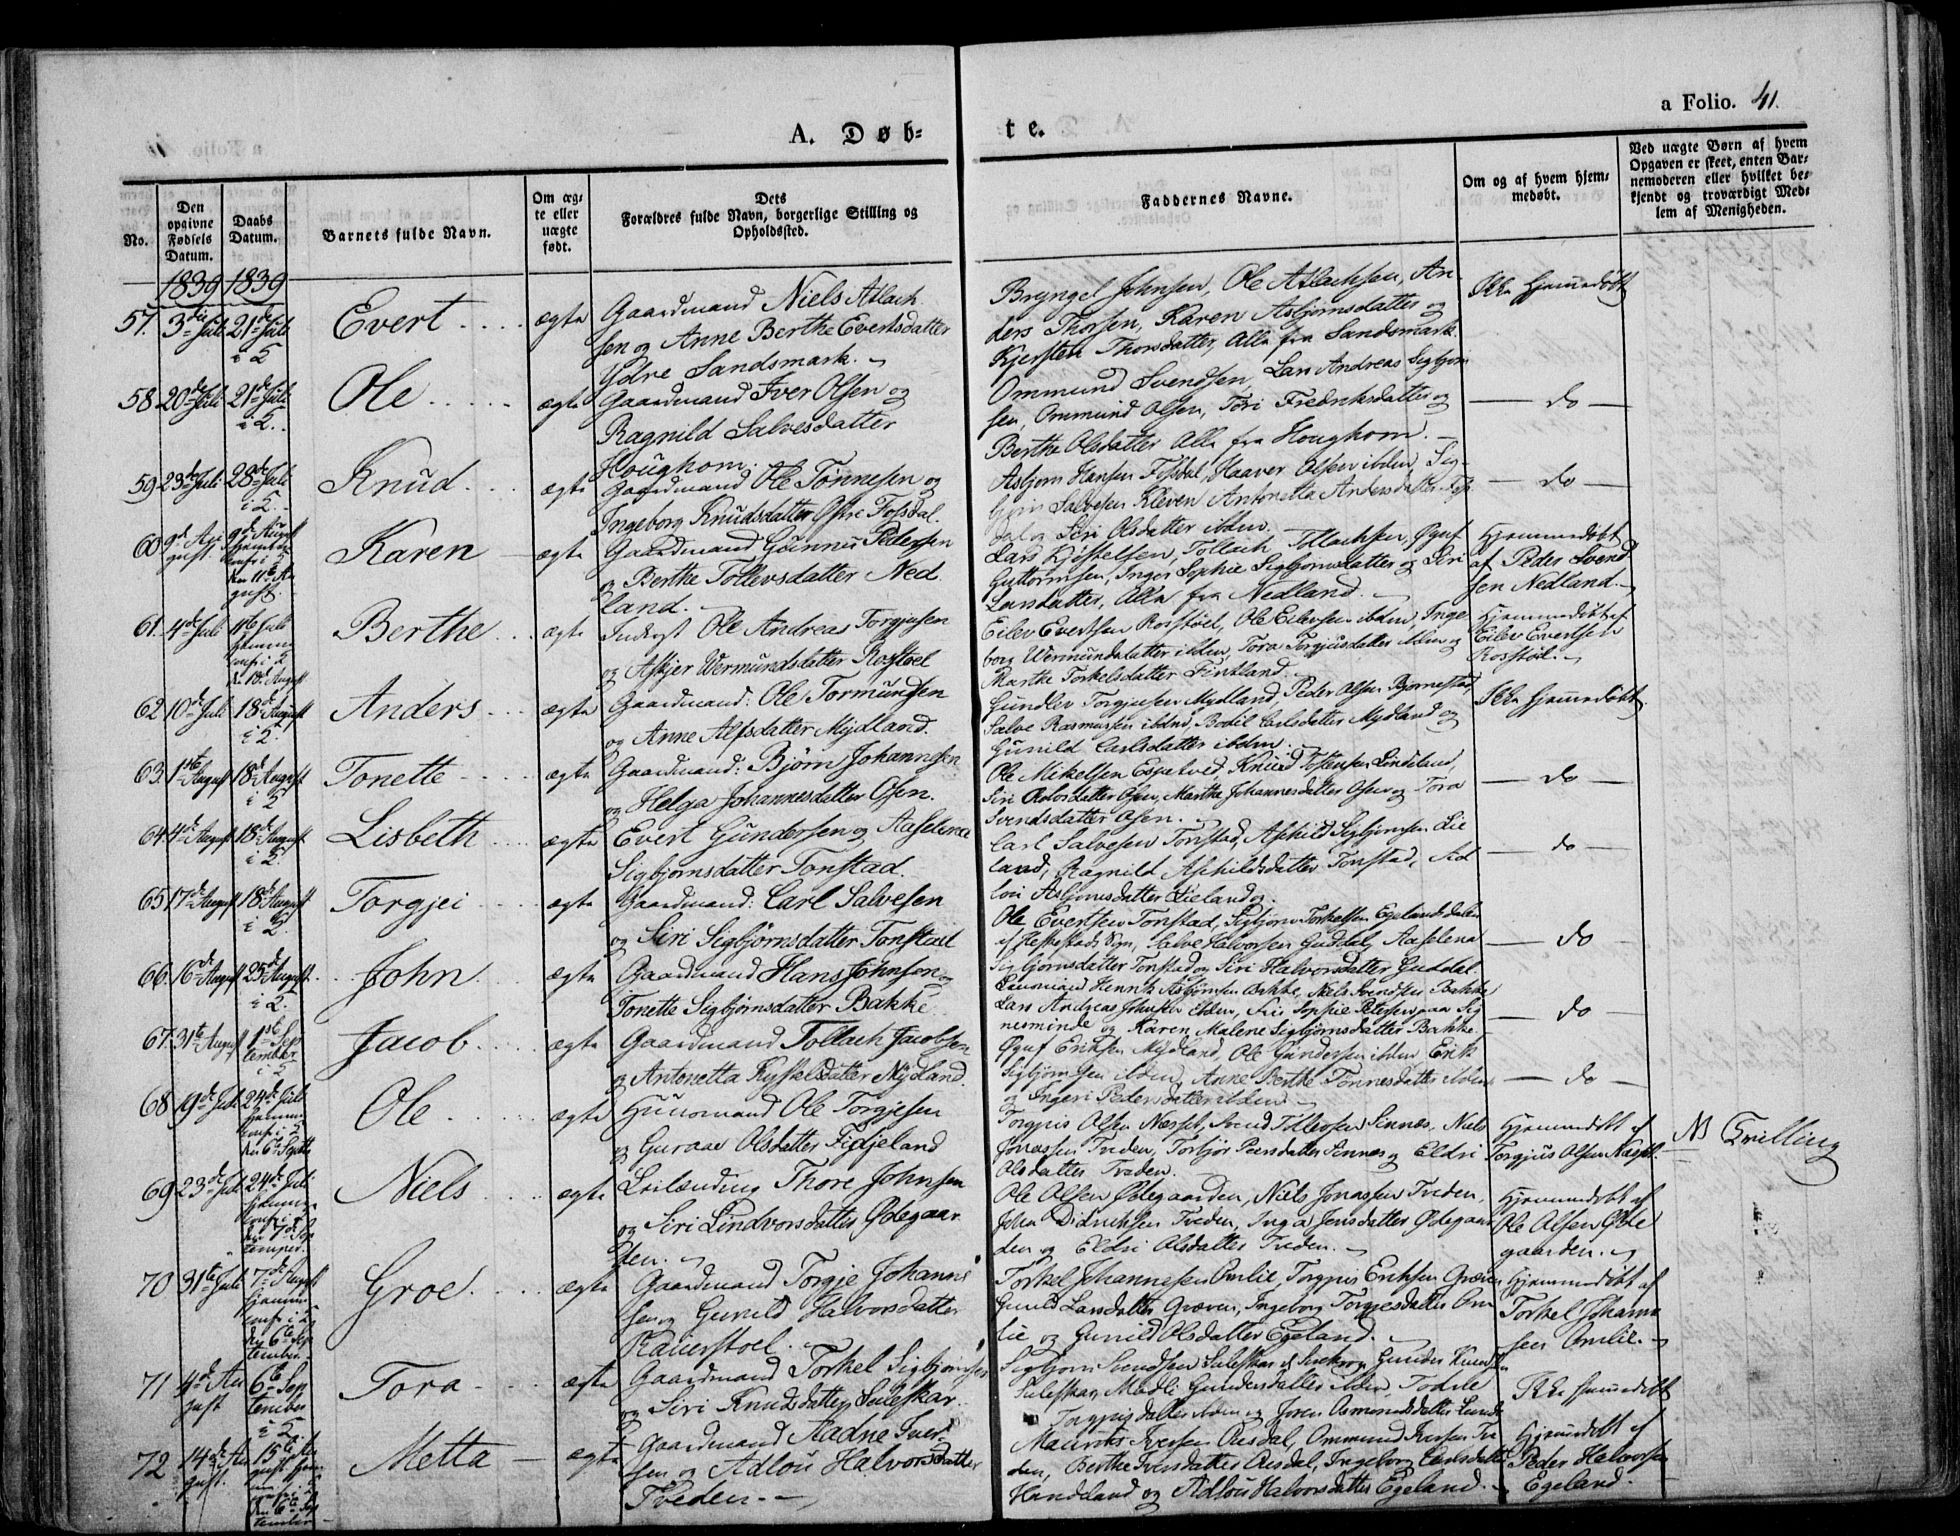 a Folio. 41.
A. Døb-
te.
No.
Den opgivne Fødsels Datum.
Daabs Datum.
Barnets fulde Navn.
Om æg-
te eller
uægte
født.
Dets
Forældres fulde Navn, borgerlige Stilling og
Opholdssted.
Faddernes Navne.
Om og af hvem hjem-
medøbt.
Ved uægte Børn af hvem
Opgaven er skeet, enten Bar-
nemoderen eller hvilket be-
kjendt og troværdigt Med-
lem af Menigheden.
1839 1839
57. 3die Juli 21de Juli i K Evert ægte
Gaardmand Niels Atlach
sen og Anne Berthe Evertsdatter
Ydre Sandsmark.
Bryngel Johnsen, Ole Atlachsen, An-
ders Thorsen, Karen Asbjørnsdatter og
Kjersten Thorsdatter, Alle fra Sandsmark.
Ikke Hjemmedøbt
58 20de Juli 21de Juli i K. Ole ægte
Gaardmand Iver Olsen og
Ragnild Salvesdatter
Houghom.
Ommund Svendsen, Lars Andreas Sigbjørn
sen, Ommund Olsen, Tori Fredriksdatter og
Berthe Olsdatter Alle fra Houghom.
do
59 23de Juli 28de Juli i K. Knud ægte
Gaardmand Ole Tønnesen og
Ingeborg Knudsdatter Øvre Fosdal.
Asbjørn Hansen Fosdal, Haaver Olsen ibdm, Sig-
bjørn Salvesen Kleven Antonetta Andersdatter Fos
dal og Siri Olsdatter ibdm.
do
60 9de Au
gust. 9de August
Karen ægte
Gaardmand Gunnus Pedersen
og Berthe Tollevsdatter Ned
land.
Lars Kjøstelsen, Tollach Tollachsen, Øguf
Guttormsen, Inger Sophie Sigbjørnsdatter og Siri
Larsdatter, Alle fra Nedland.
Hjemmedøbt
af Peder Svend
sen Nedland.
61. 4de Juli Berthe ægte
Inderst Ole Andreas Torgjusen
og Askjer Wermundsdatter Rosstøel
Eilev Evertsen Rosstøel, Ole Eilevsen ibdm, Inge
borg Wermundsdatter ibdm, Tora Torgjusdatter ibdm og
Marthe Torkelsdatter Fintland.
Hjemmedøbt af
Eilev Evertsen
Rosstøel.
62 10de Juli 18de August i K. Anders ægte
Gaardmand: Ole Tormundsen
og Anne Alfsdatter Mydland.
Gundlev Torgjusen Mydland, Peder Olsen Bjørnestad,
Salve Rasmussen ibdm, Bodil Carlsdatter Mydland og
Gunild Carlsdatter ibdm.
Ikke Hjemmedøbt.
63. 1ste August 18de August i K Tonette ægte
Gaardmand: Bjørn Johannesen
og Helga Johannesdatter Osen.
Ole Mikelsen Espetved, Knud Tostensen Lindeland,
Siri Osen, Marthe Johannesdatter Osen og Tora
Svendsdatter Osen.
do
64 4de August 18de August i K. Lisbeth ægte
Evert Gundersen og Aaselena
Sigbjørnsdatter Tonstad.
Carl Salvesen Tonstad, Askild Sigbjørnsen Lie
land, Ragnild Askildsdatter Tonstad, Ad
lou Asbjørnsdatter Lieland og
do
65 17de August 18de August i K. Torgjei ægte
Gaardmand: Carl Salvesen
og Siri Sigbjørnsdatter Tonstad
Ole Evertsen Tonstad, Sigbjørn Torkelsen Egelandsdalen
af Heskestads Sogn, Salve Halvorsen Guddal, Aaselena
Sigbjørnsdatter Tonstad og Siri Halvorsdatter Guddal.
do
66. 16de August 25de August. i K. John ægte
Gaardmand Hans Johnson og
Tonette Sigbjørnsdatter Bakke
Henrik Asbjørnsen Bakke, Niels Svendsen Bakke
Lars Andreas Johnsen ibdm, Siri Sophie Petersen paa Sig
nesminde og Karen Malene Sigbjørnsdatter Bakke
do
67. 31te August 1ste Sep
tember i K Jacob ægte
Gaardmand Tollach Jacobsen
og Antonetta Mydland.
Øguf Eriksen Mydland, Ole Gundersen ibdm Erik
Sigbjørnsen ibdm, Anne Berthe Tønnesdatter ibdm
og Ingeri Pedersdatter ibdm
do
68 19de Juli 24de Juli
Ole ægte
Huusmand Ole Torgjesen
og Guraae Olsdatter Fidjeland
Torgjus Olsen Næsset, Svend Tollevsen Sinnes, Niels
Jonassen Tveden, Torbjør Peersdatter Sinnes og Eldri
Olsdatter Tveden.
Hjemmedøbt af
Torgjus Olsen Næsset.
NB Tvilling
69 23de Juli 24de Juli
Niels ægte
Leilænding Thore Johnsen
og Siri Lindvorsdatter Ødegaar
den.
Ole Olsen Ødegaarden, Niels Jonassen Tveden,
John Didriksen Tveden, Inga Jensdatter Ødegaar
den og Eldri Olsdatter Tveden.
Hjemmedøbt af
Ole Olsen Øde
gaarden.
70 31te Juli 7de August
Groe ægte
Gaardmand Torgje Johanne
sen og Gunild Halvorsdatter
Torkel Johannesen Omlie, Torgjus Eriksen Græven
Gunild Larsdatter Græven, Ingeborg Torgjesdatter Om
lie og Gunild Olsdatter Egeland.
Hjemmedøbt af
Torkel Johanne
sen Omlie.
71 4de Au
gust 6te Sep
tember i K. Tora ægte
Gaardmand Torkel Sigbjørnsen
og Siri Knudsdatter Suleskar.
Sigbjørn Svendsen Suleskar, Gunder
Suleskar, Gundersdatter ibdm, Todne
Torgjusdatter ibdm og Joren Osmundsdatter
Ikke hjemmedøbt
72 14de Au
gust. 15de Au
gust
Metta ægte
Gaardmand Aadne Iver
sen og Adlou Halvorsdatter
Tveden.
Maurits Iversen Ousdal, Ommund Iversen Tve
den, Berthe Iversdatter Ousdal, Ingeborg Carlsdatter
Handeland og Adlou Halvorsdatter Egeland.
Hjemmedøbt af
Peder Halvorsen
Egeland.